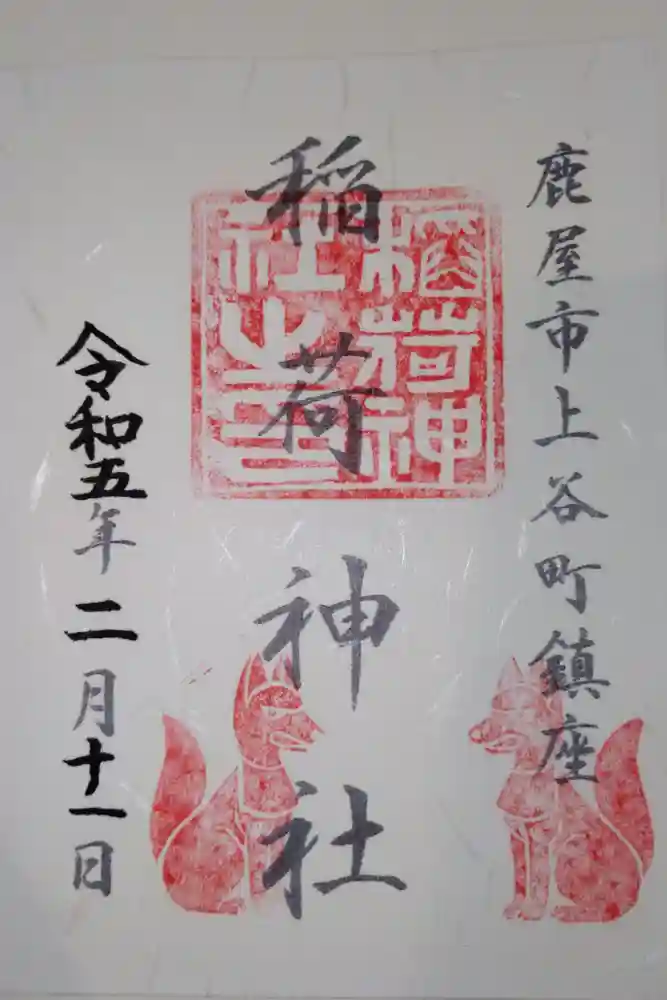 鹿屋市上谷町鎮座
稲荷神社
稲荷神
社之印
令和五年二月十一日